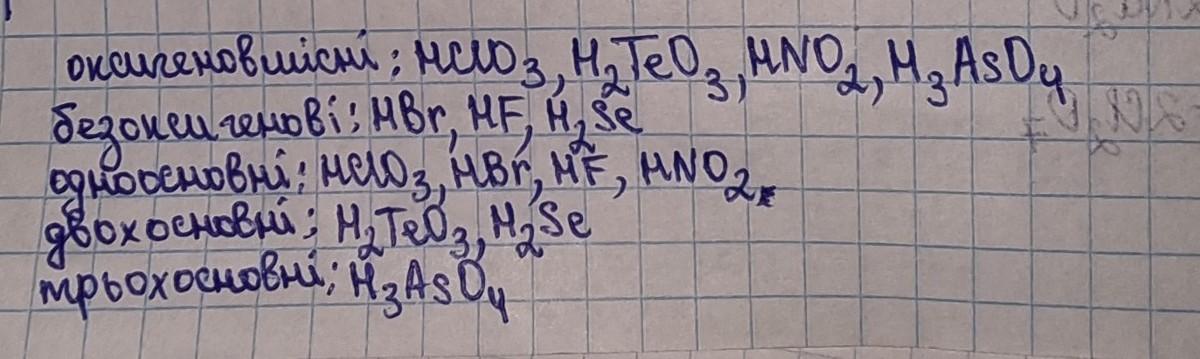 оксигеновмісні: HClO₃, H₂TeO₃, HNO₂, H₃AsO₄
безоксигенові: HBr, HF, H₂Se
одноосновні: HClO₃, HBr, HF, HNO₂.
двохосновні: H₂TeO₃, H₂Se
трьохосновні: H₃AsO₄